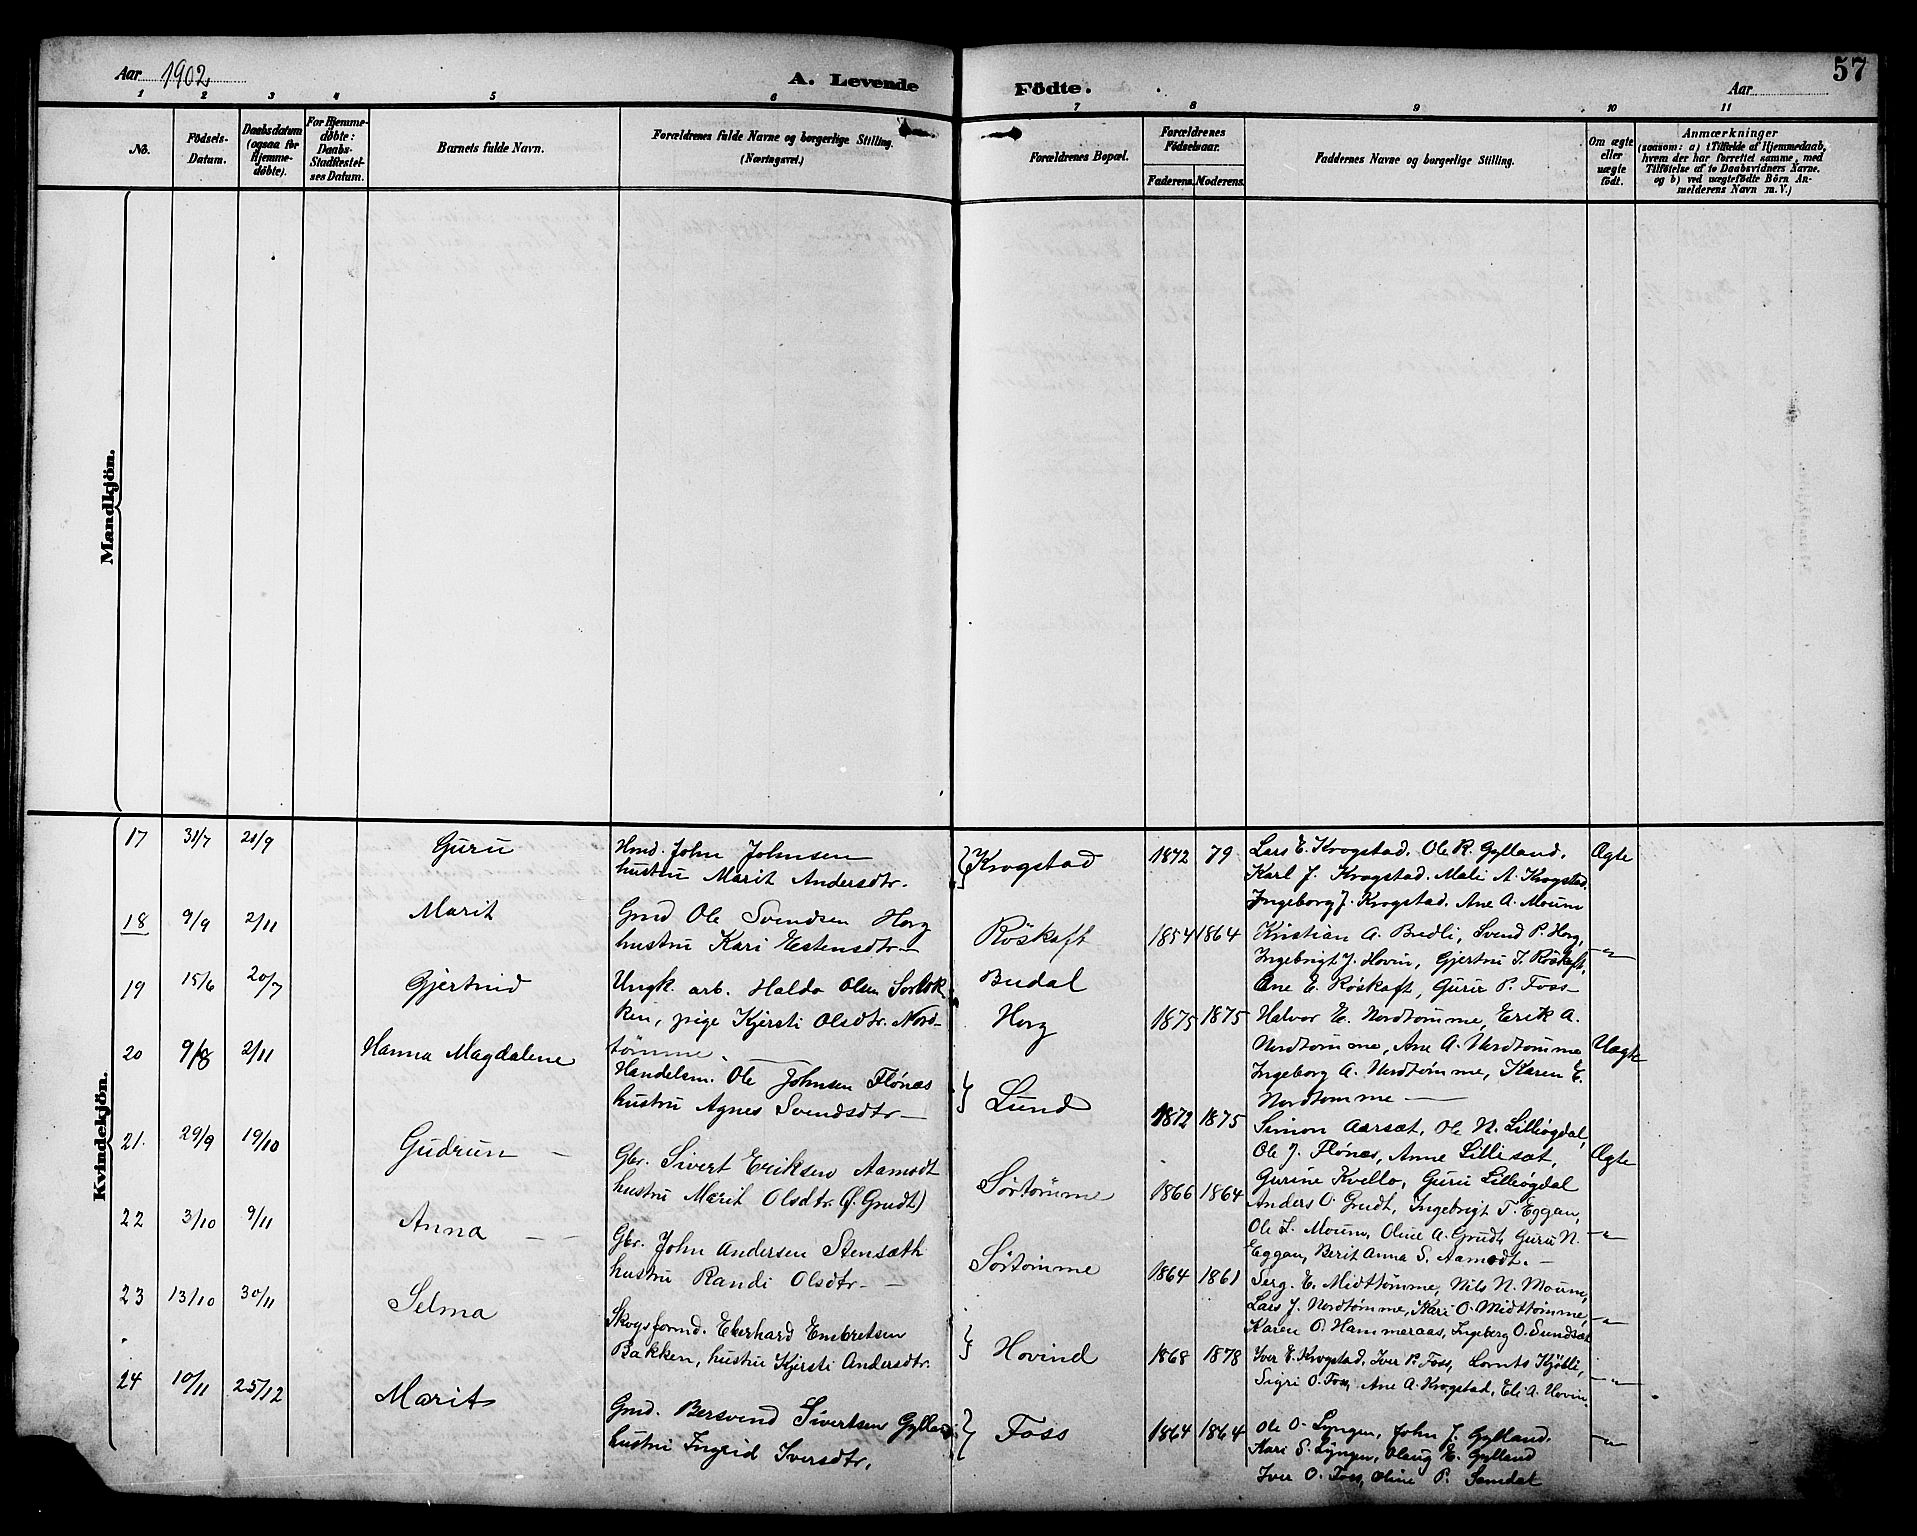 Aar 1902
A. Levende Födte.
Aar
57
1 2 3 4 5 6 7 8 9 10 11
No.
Födsels-Datum.
Daabsdatum (ogsaa for Hjemmedøbte).
For Hjemmedøbte: Daabs-Stadfæstelses Datum.
Barnets fulde Navn.
Forældrenes fulde Navne og borgerlige Stilling. (Næringsvei.)
Forældrenes Bopæl.
Forældrenes Födselsaar.
Faderens. Moderens.
Faddernes Navne og borgerlige Stilling.
Om ægte eller uægte födt.
Anmærkninger
(saasom: a) i Tilfælde af Hjemmedaab,
hvem der har forrettet samme, med
Tilföielse af to Daabsvidners Navne.
og b) ved uægtefödte Börn An-
melderens Navn m. V.)
Mandkjön.
Kvindekjön.
17 31/7 21/9 Guru
Hmd. John Johnsen
hustru Marit Andersdtr.
Krogstad 1872 79
Lars E. Krogstad. Ole R. Gylland.
Karl J. Krogstad. Mali A. Krogstad.
Ingeborg J. Krogstad. Ane A. Moum
Ægte
18 9/9 2/11 Marit
Gmd Ole Svendsen Horg
hustru Kari Estensdtr.
Röskaft 1854 1864
Kristian A. Bredli, Svend P. Horg,
Ingebrigt J. Hovin, Gjertru J. Röskaft,
Ane E. Röskaft, Guru P. Foss
-"-
19 15/6 20/7 Gjertrud
Ungk. arb. Haldo Olsen
ken, pige Kjersti Olsdtr. Nord-
tømme.
Budal
Horg 1875 1875
Halvor E. Nordtømme, Erik A.
Nordtømme, Ane A. Nordtømme
Ingeborg A. Nordtømme, Karen E.
Nordtømme
Uægte
20 9/8 2/11 Hanna Magdalene
Handelsm. Ole Johnsen Flönæs
hustru Agnes Svendsdtr
Lund 1872 1875
Simon Aarsæt, Ole N. Lilleøgdal,
Ole J. Flönæs, Anne Lillesæt,
Gurine Kvello, Guru Lilleøgdal
Ægte
21. 29/9 19/10 Gudrun
Gbr. Sivert Eriksen Aamodt
hustru Marit Olsdtr. (f. Grudt)
Sørtømme 1866 1864
Anders O. Grudt, Ingebrigt T. Eggan,
Ole L. Moum, Oline A. Grudt, Guru N.
Eggan, Berit Anna S. Aamodt.
-"-
22 3/10 9/11 Anna
Gbr. John Andersen Stensæth
hustru Randi Olsdtr.
Sørtømme 1864 1861
Serg. E. Midttømme, Nils N. Moum,
Lars J. Nordtømme, Kari O. Midttømme,
Karen P. Hammeraas, Ingeberg O. Sundsæt
-"-
23 13/10 30/11 Selma
Skogsformd. Eberhard Embretsen
Bakken, hustru Kjersti Andersdtr.
Hovind 1868 1878
Iver E. Krogstad, Iver P. Foss, Lornts Kjøbli,
Sigri O. Foss, Ane A. Krogstad, Eli A. Hovin
-"-
24 10/11 25/12 Marit
Gmd. Bersvend Sivertsen Gylland
hustru Ingrid Iversdtr.
Foss 1864 1864
Ole O. Lyngen, John J. Gylland.
Kari S. Lyngen, Olaug E. Gylland
Iver O. Foss, Oline P. Samdal
-"-